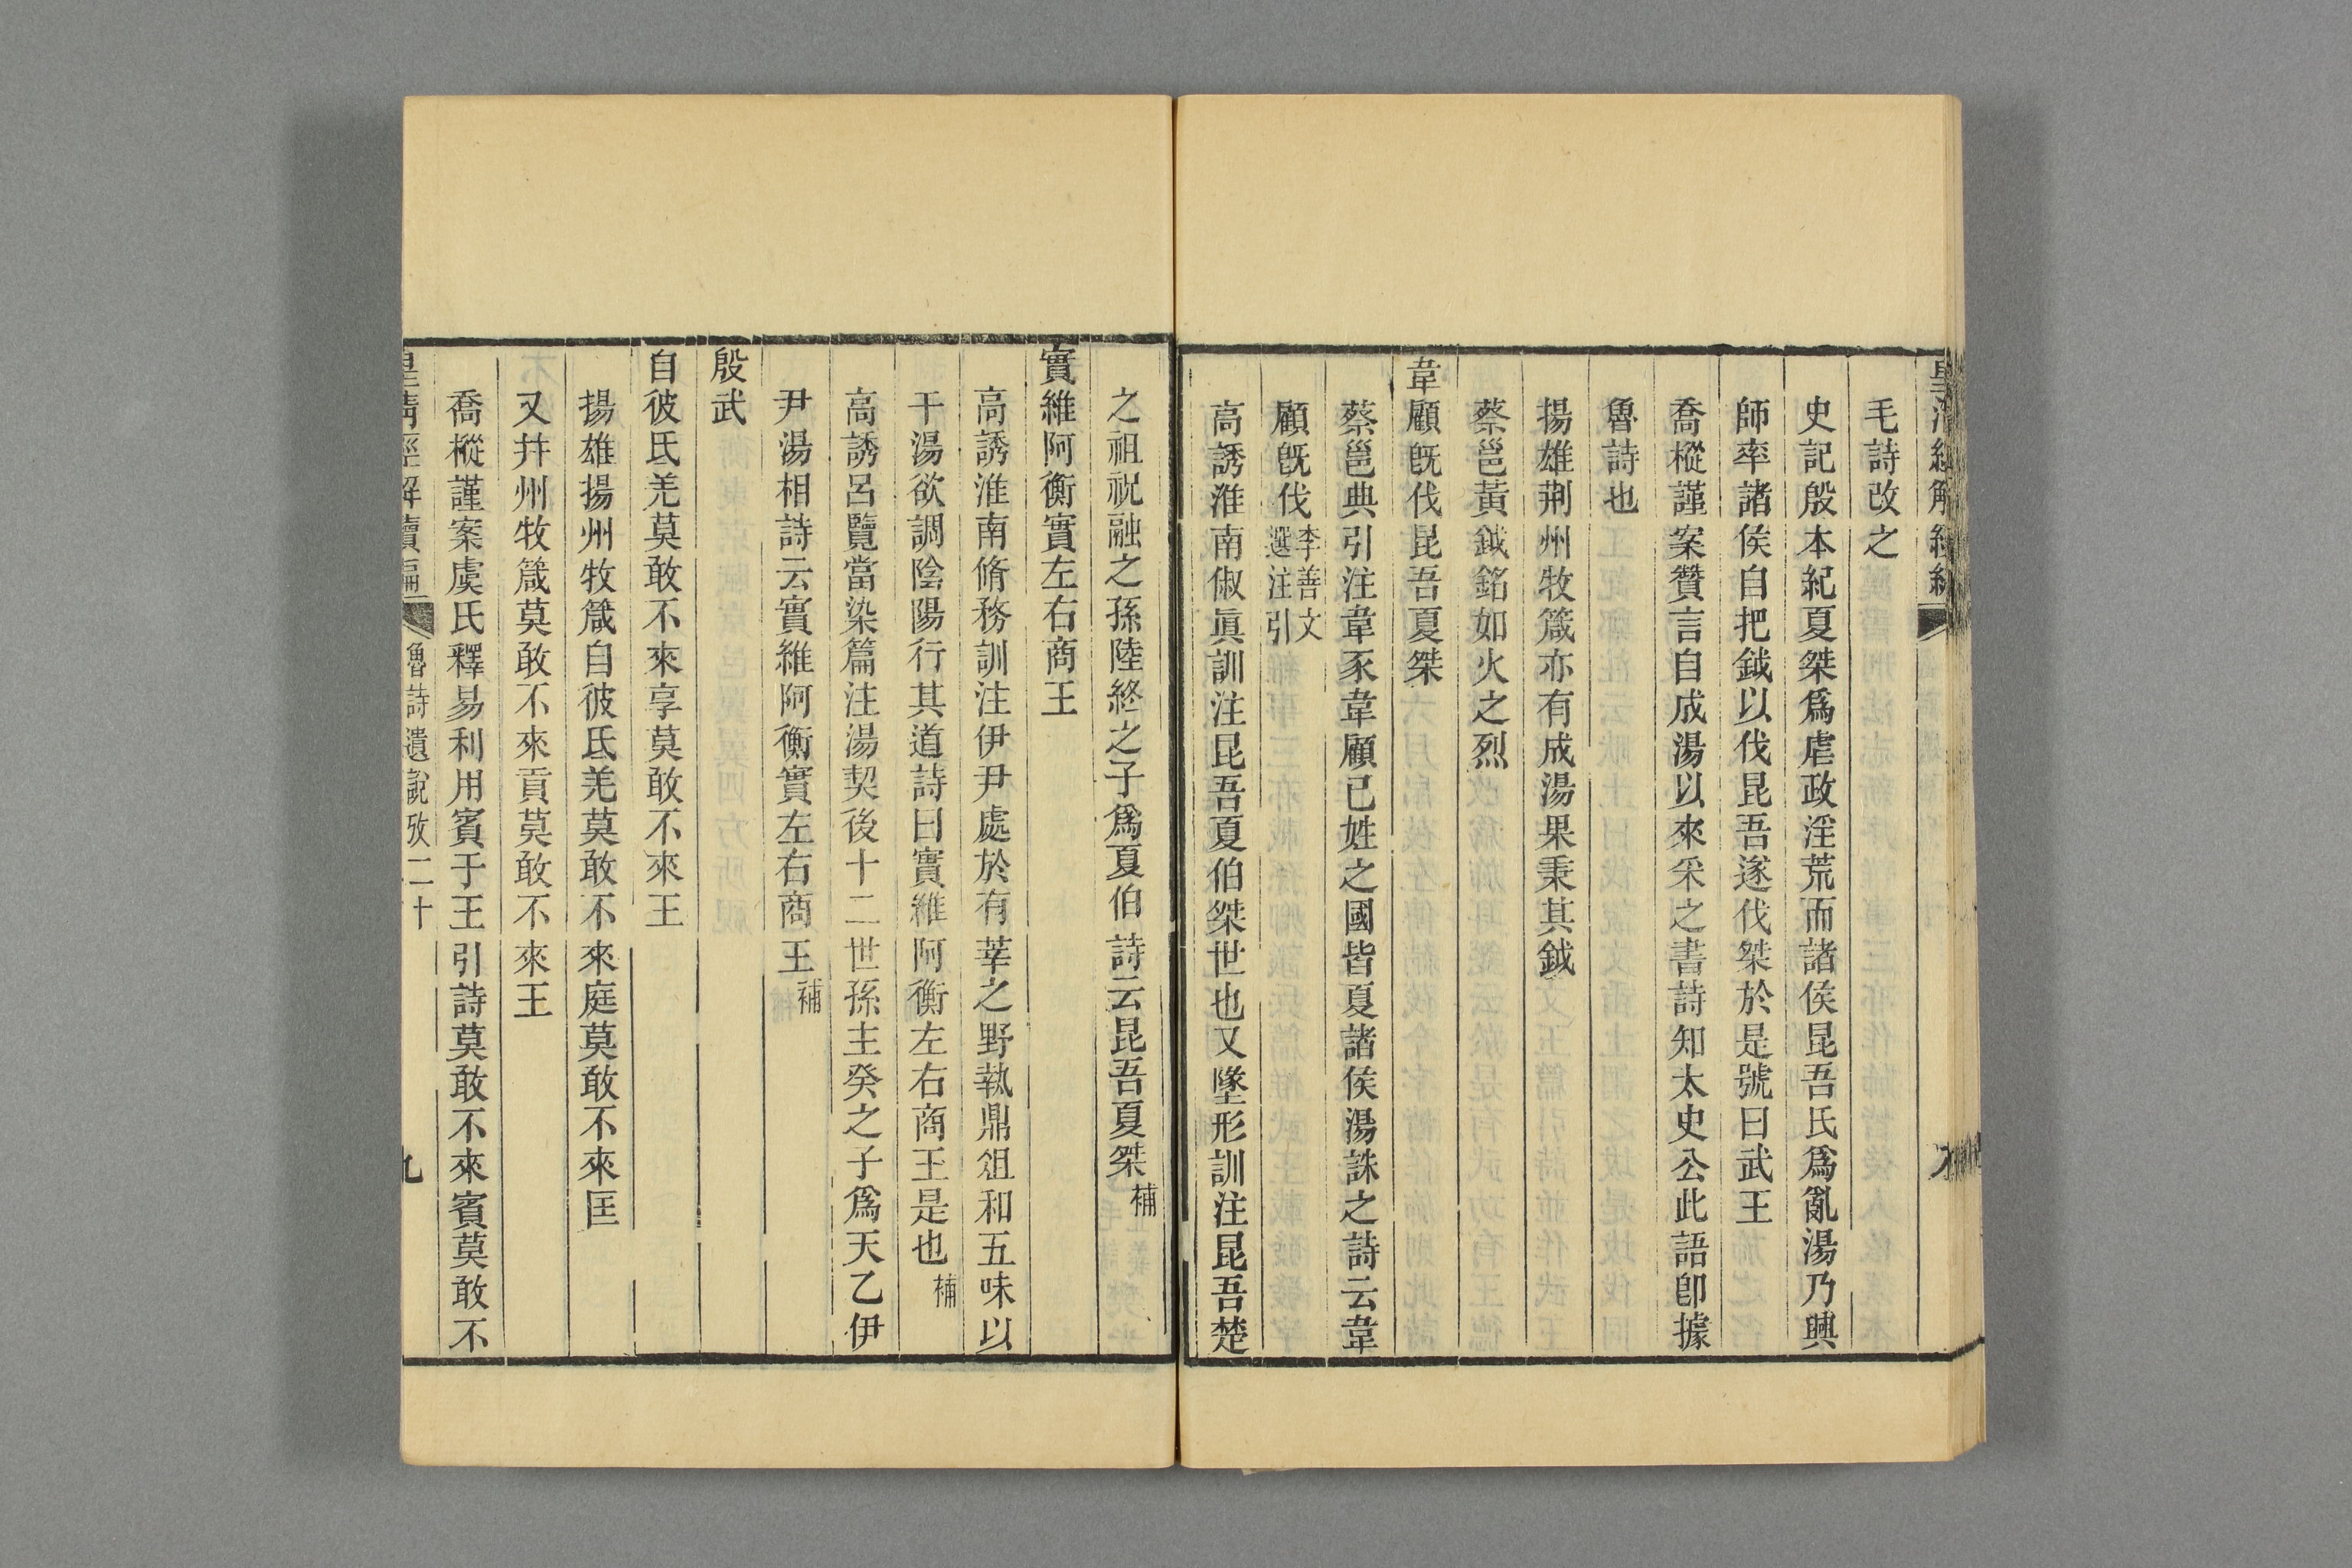 毛詩改之
史記殷本紀夏桀爲虐政淫荒而諸侯昆吾氏爲亂湯乃興
師率諸侯自把鉞以伐昆吾遂伐桀於是號曰武王
喬樅謹案贊言自成湯以來采之書詩知太史公此語卽據
魯詩也
揚雄荆州牧箴亦有成湯果秉其鉞
蔡邕黃鉞銘如火之烈
韋顧旣伐昆吾夏桀
蔡邕典引注韋豕韋顧已姓之國皆夏諸侯湯誅之詩云韋
顧旣伐李善文選注引
高誘淮南俶眞訓注昆吾夏伯桀世也又墜形訓注昆吾楚
之祖祝融之孫陸終之子爲夏伯詩云昆吾夏桀補
實維阿衡實左右商王
高誘淮南脩務訓注伊尹處於有莘之野執鼎俎和五味以
干湯欲調陰陽行其道詩曰實維阿衡左右商王是也補
高誘呂覽當染篇注湯契後十二世孫主癸之子爲天乙伊
尹湯相詩云實維阿衡實左右商王補
殷武
自彼氐羌莫敢不來享莫敢不來王
揚雄揚州牧箴自彼氐羌莫敢不來庭莫敢不來匡
又幷州牧箴莫敢不來貢莫敢不來王
喬樅謹案虞氏釋易利用賓于王引詩莫敢不來賓莫敢不
皇清經解續編 魯詩遺說攷二十 九